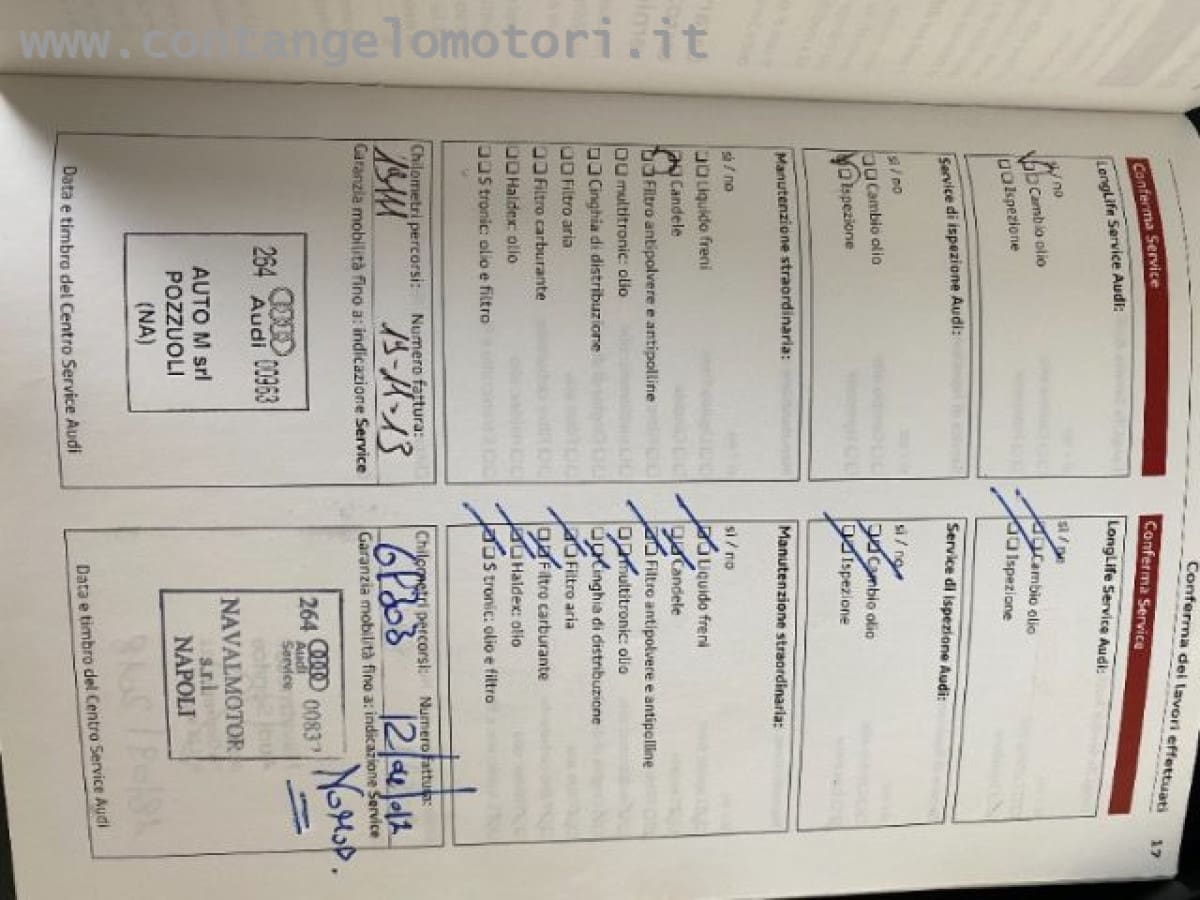 www.contangelomotori.it
Conferma dei lavori effettuati 17
Conferma Service
LongLife Service Audi:
sì / no
Cambio olio
Ispezione
Service di ispezione Audi:
sì / no
Cambio olio
Ispezione
Manutenzione straordinaria:
sì / no
Liquido freni
Candele
Filtro antipolvere e antipolline
multitronic: olio
Cinghia di distribuzione
Filtro aria
Filtro carburante
Haldex: olio
S tronic: olio e filtro
Chilometri percorsi: Numero fattura:
19-11-13
Garanzia mobilità fino a: indicazione Service
264 Audi 00963
AUTO M srl
POZZUOLI
(NA)
Data e timbro del Centro Service Audi
Conferma Service
LongLife Service Audi:
sì / no
Cambio olio
Ispezione
Service di ispezione Audi:
sì / no
Cambio olio
Ispezione
Manutenzione straordinaria:
sì / no
Liquido freni
Candele
Filtro antipolvere e antipolline
multitronic: olio
Cinghia di distribuzione
Filtro aria
Filtro carburante
Haldex: olio
S tronic: olio e filtro
Chilometri percorsi: Numero fattura:
Garanzia mobilità fino a: indicazione Service
264 Audi Service 0083
NAVALMOTOR
s.r.l.
NAPOLI
Data e timbro del Centro Service Audi